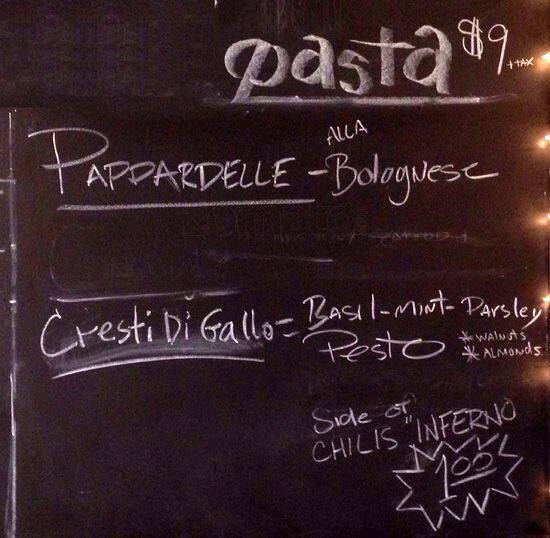 pasta $9 +TAX
PAPPARDELLE - ALLA Bolognese
Cresti Di Gallo = Basil-Mint-Parsley
Pesto * WALNUTS
* ALMONDS
Side of
CHILIS "INFERNO
1.00